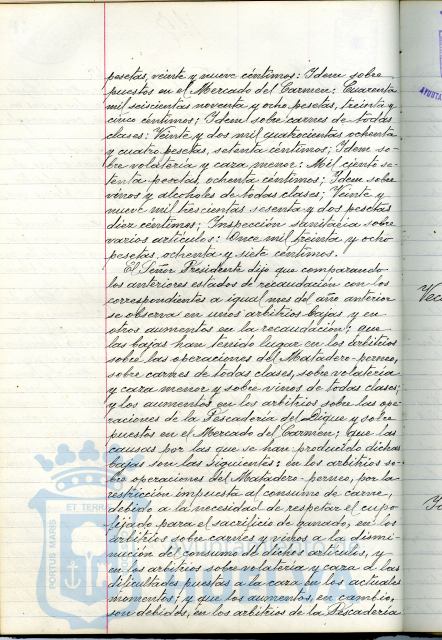 pesetas, veinte y nueve céntimos: Idem sobre
puestos en el Mercado del Carmen: Cuarenta
mil seiscientas noventa y ocho pesetas, treinta y
cinco céntimos; Idem sobre carnes de todas
clases: Veinte y dos mil quatrocientas ochenta
y cuatro pesetas, setenta céntimos; Idem so-
bre volateria y caza menor: Mil ciento se-
tenta pesetas, ochenta céntimos; Idem sobre
vinos y alcoholes de todas clases; Veinte y
nueve mil trescientas sesenta y dos pesetas
diez céntimos; Inspección sanitaria sobre
varios artículos: Once mil treinta y ocho
pesetas, ochenta y siete céntimos.
El Señor Presidente dijo que comparando
los anteriores estados de recaudación con los
correspondientes a igual mes del año anterior
se observa en unos arbitrios bajas y en
otros aumentos en la recaudación; que
las bajas han tenido lugar en los arbitrios
sobre las operaciones del Matadero-perneo,
sobre carnes de todas clases, sobre volateria
y caza menor y sobre vinos de todas clases;
y los aumentos en los arbitrios sobre las ope-
raciones de la Pescadería del Dique y sobre
puestos en el Mercado del Carmen; que las
causas por las que se han producido dichas
bajas son las siguientes: en los arbitrios so-
bre operaciones del Matadero-perneo, por la
restricción impuesta al consumo de carne,
debido a la necesidad de respetar el cupo
fijado para el sacrificio de ganado, en los
arbitrios sobre carnes y vinos a la dismi-
nución de consumo de dichos artículos, y
en los arbitrios sobre volateria y caza a las
dificultades puestas a la caza en los actuales
momentos; y que los aumentos, en cambio,
son debidos, en los arbitrios de la Pescadería
PORTUS MARIS ET TERRA